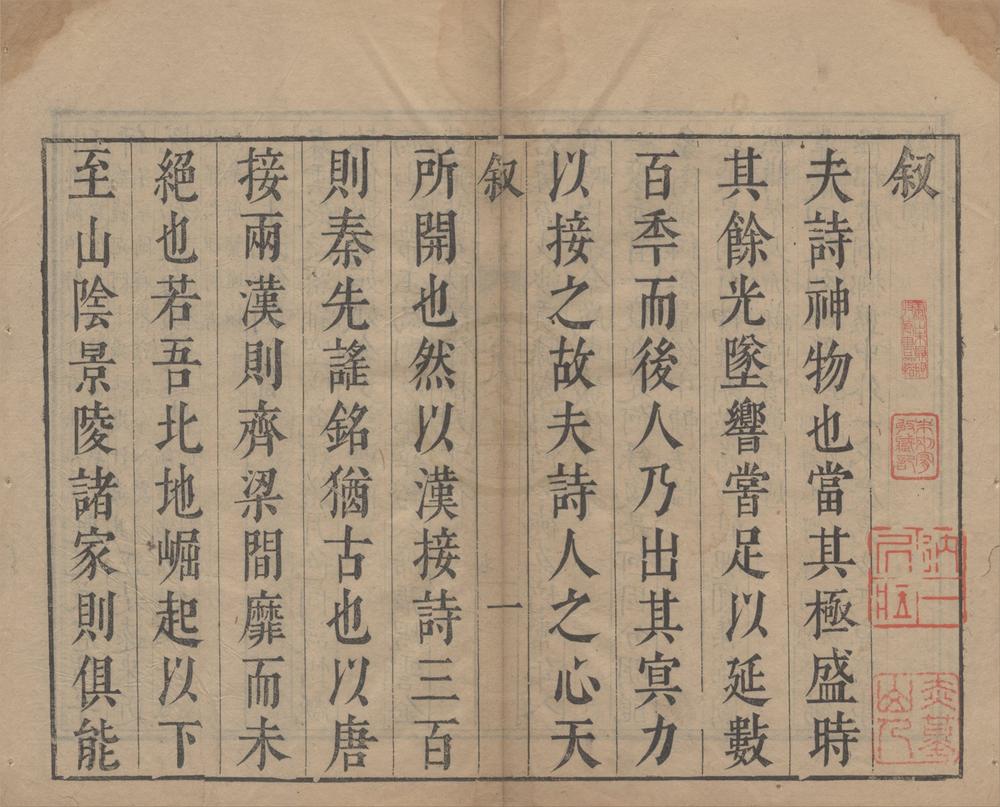 叙
夫詩神物也當其極盛時
其餘光墜響嘗足以延數
百秊而後人乃出其㝠力
以接之故夫詩人之心天
叙
一
所開也然以漢接詩三百
則秦先謠銘猶古也以唐
接兩漢則齊梁間靡而未
絕也若吾北地崛起以下
至山陰景陵諸家則俱能